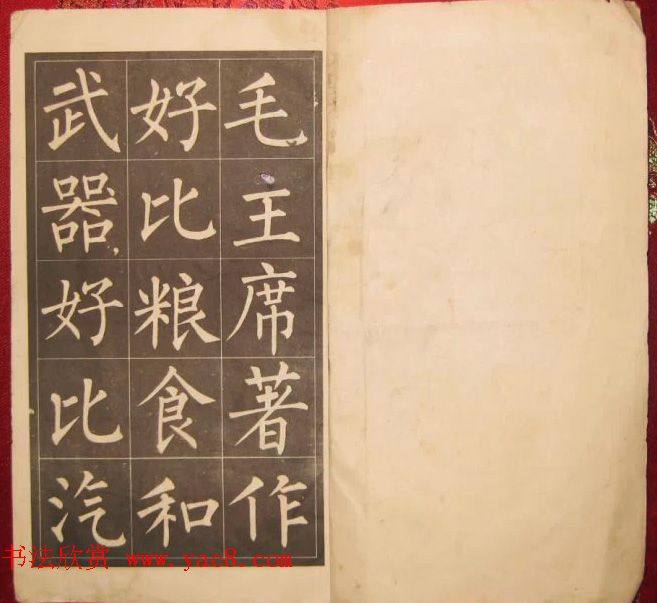 毛主席著作
好比粮食和
武器好比汽
书法欣赏 www.yac8.com